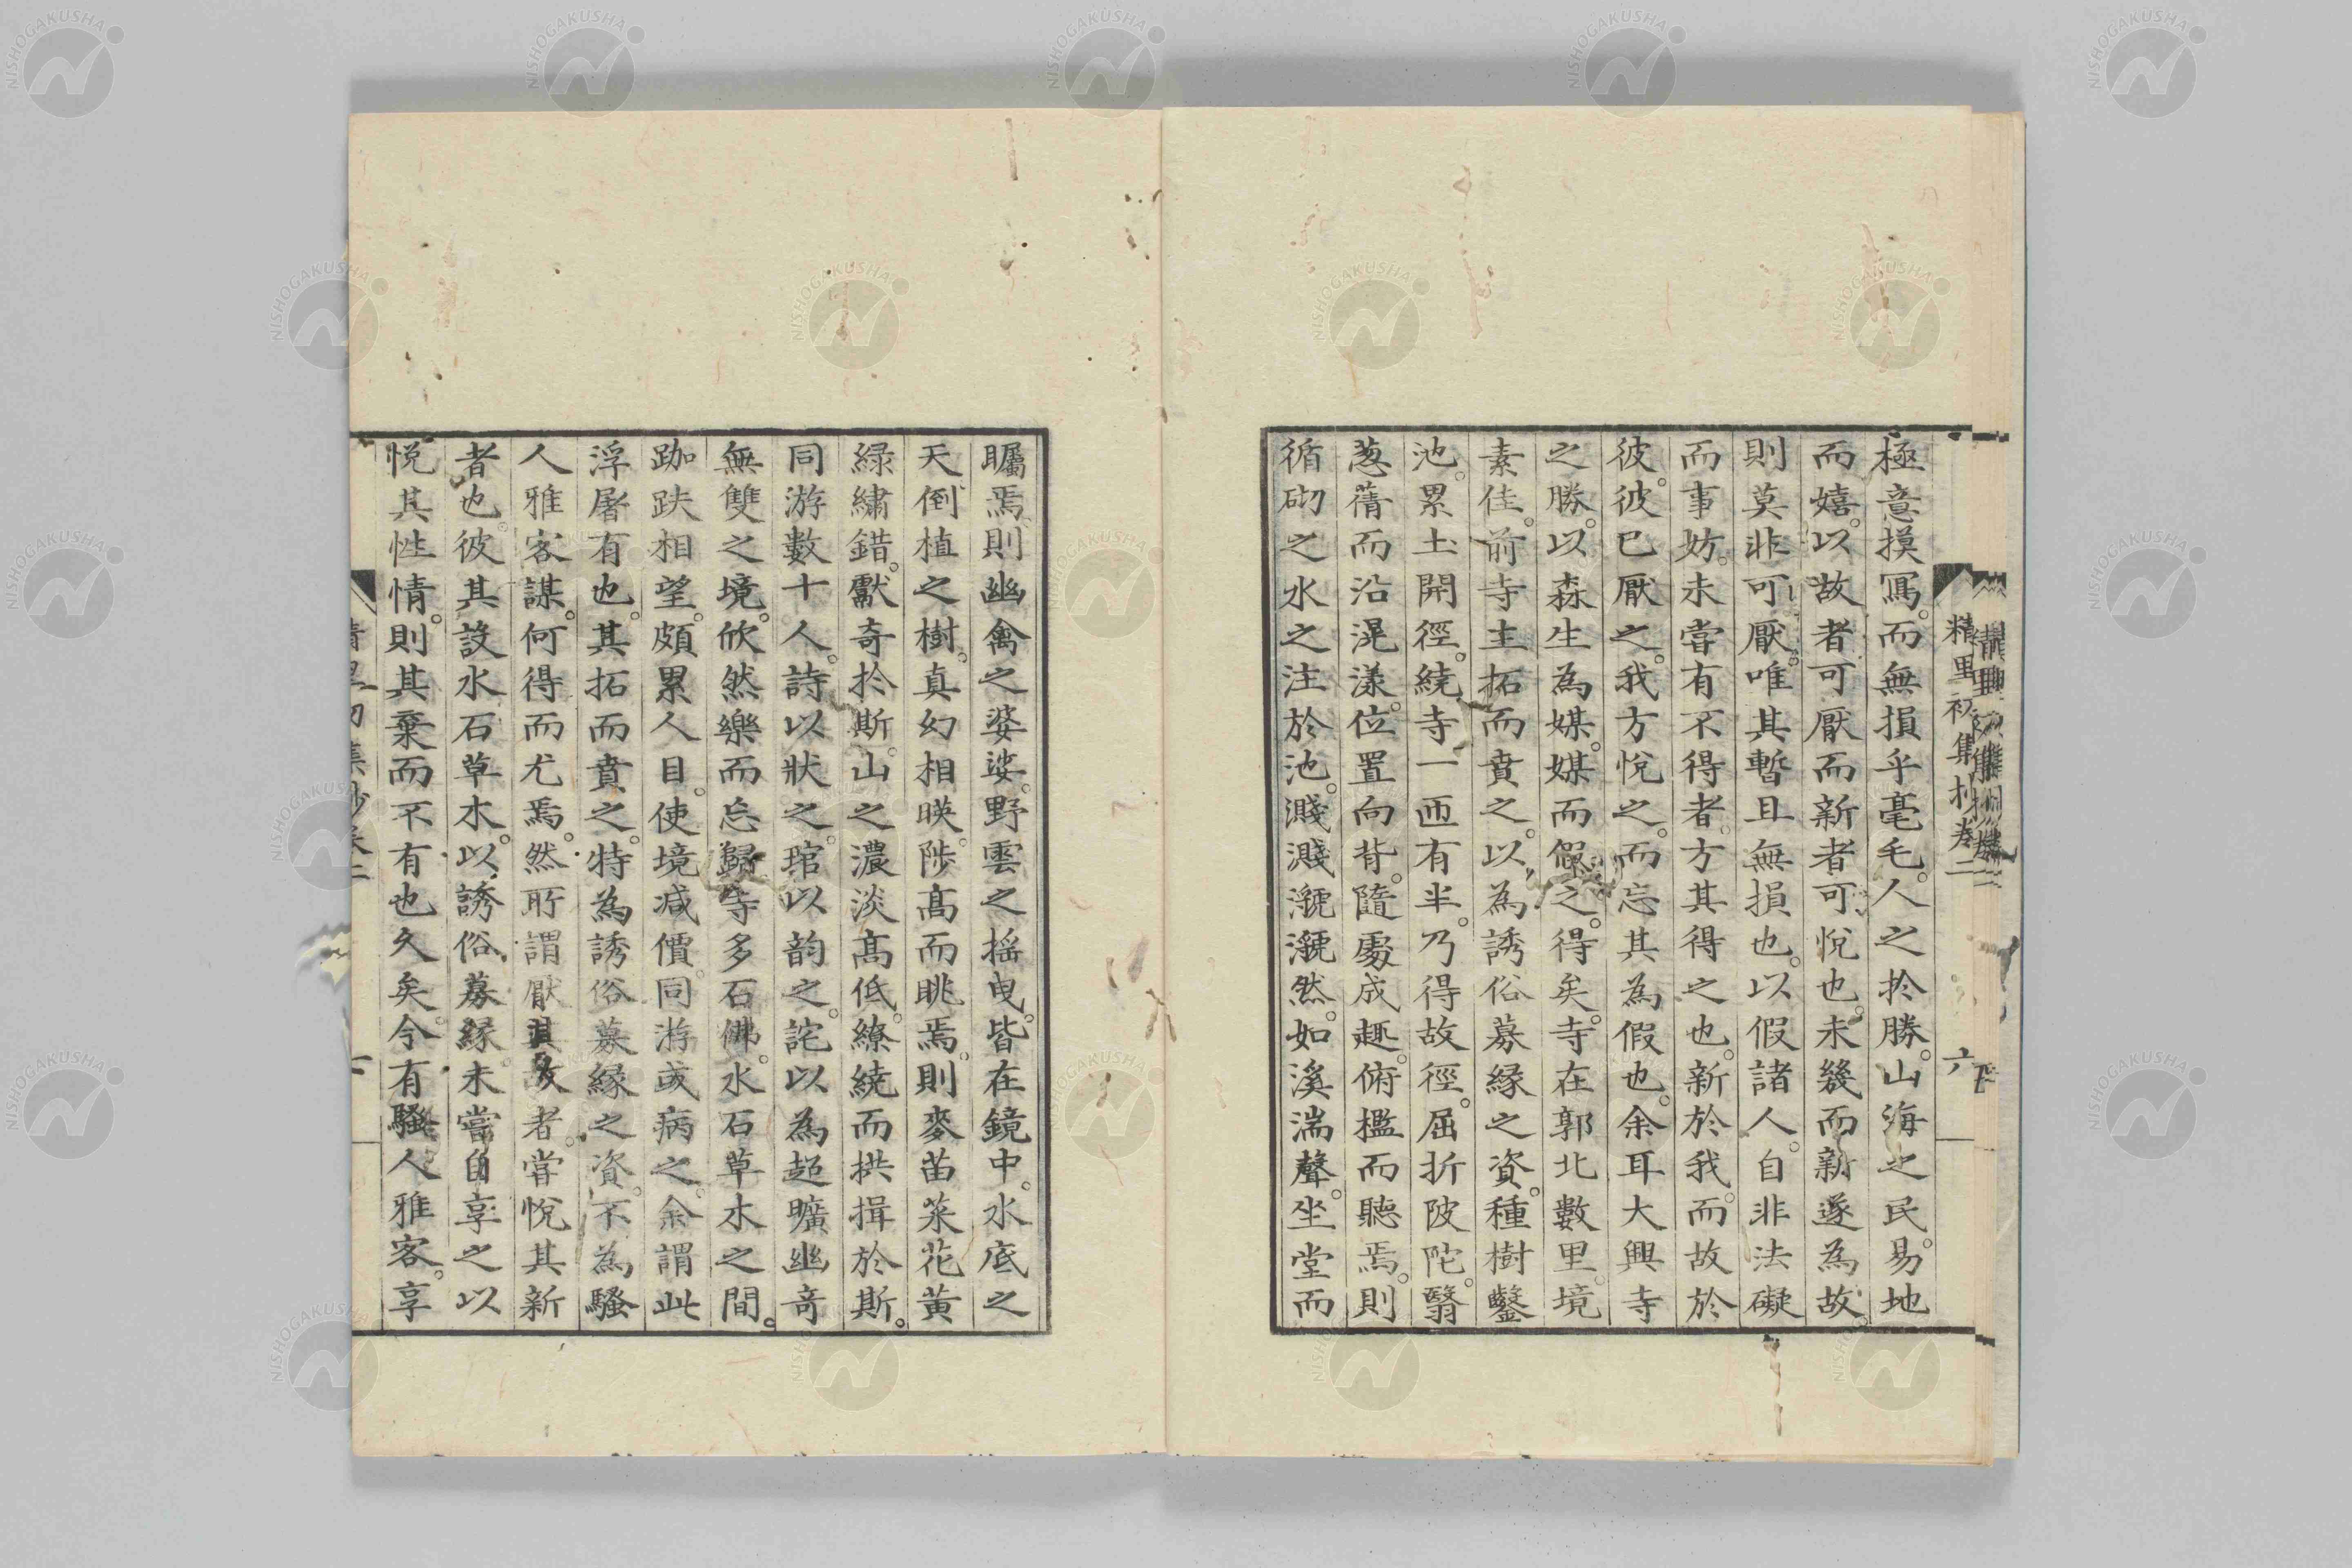 極意摸寫。而無損乎毫毛。人之於勝。山海之民。易地
而嬉。以故者可厭而新者可悅也。未幾而新遂為故。
則莫非可厭。唯其暫且無損也。以假諸人。自非法礙
而事妨。未嘗有不得者。方其得之也。新於我。而故於
彼。彼已厭之。我方悅之。而忘其為假也。余耳大興寺
之勝。以森生為媒。媒而假之。得矣。寺在郭北數里。境
素佳。前寺主拓而賁之。以為誘俗募緣之資。種樹鑿
池。累土開徑。繞寺一匝有半。乃得故徑。屈折陂陀。翳
蔥蒨而沿滉漾。位置向背。隨處成趣。俯檻而聽焉。則
循砌之水之注於池。濺濺㶁㶁然。如溪湍聲。坐堂而
精里初集抄卷二
六
矚焉。則幽禽之婆娑。野雲之搖曳。皆在鏡中。水底之
天。倒植之樹。真幻相暎。陟高而眺焉。則麥苗菜花黃
綠繡錯。獻奇於斯。山之濃淡高低。繚繞而拱揖於斯。
同游數十人。詩以狀之。琯以韵之。詫以為超曠幽奇
無雙之境。欣然樂而忘歸。寺多石佛。水石草木之間。
跏趺相望。頗累人目。使境减價。同游或病之。余謂此
浮屠有也。其拓而賁之。特為誘俗募緣之資。不為騷
人雅客謀。何得而尤焉。然所謂厭其故者。嘗悅其新
者也。彼其設水石草木。以誘俗募緣。未嘗自享之以
悅其性情。則其棄而不有也久矣。今有騷人雅客。享